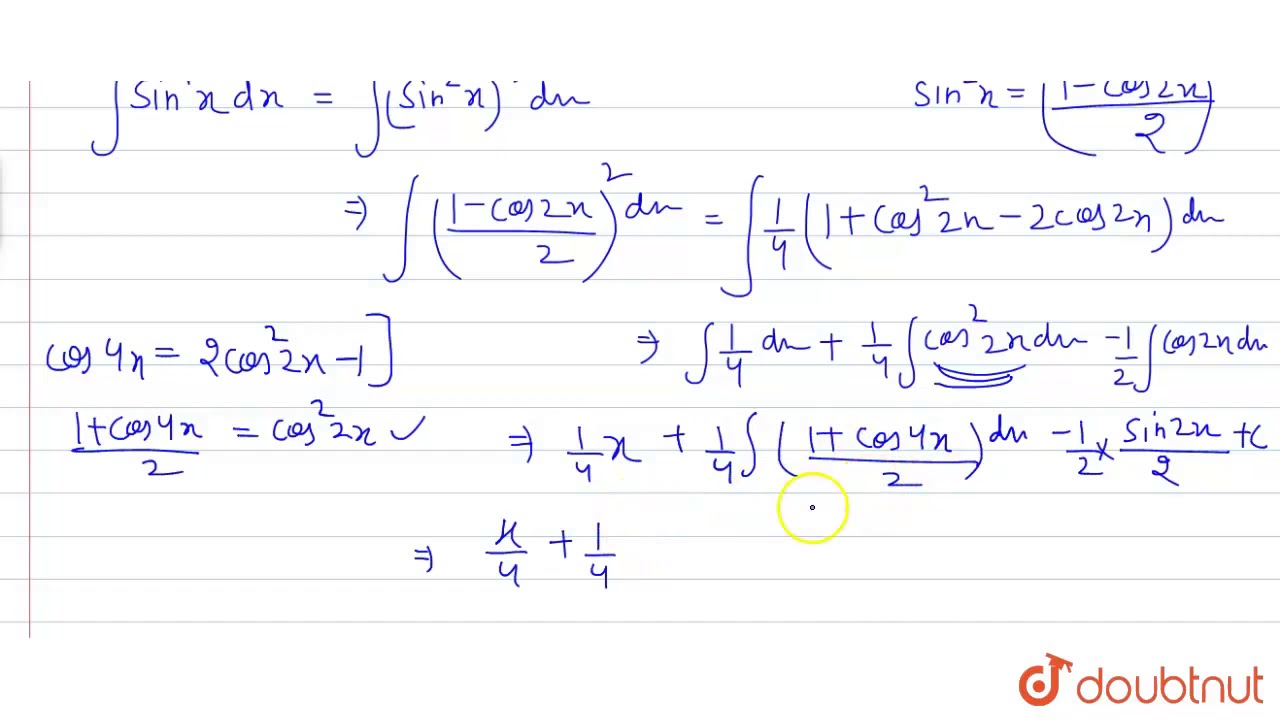 ∫ sin x dx = ∫ (sin²x) dx
sin²x = (1 - cos2x)/2
⇒ ∫ ((1 - cos2x)/2)² dx = ∫ 1/4 (1 + cos²2x - 2cos2x) dx
cos4x = 2cos²2x - 1]
⇒ ∫ 1/4 dx + 1/4 ∫ cos²2x dx - 1/2 ∫ cos2x dx
(1 + cos4x)/2 = cos²2x ✓
⇒ 1/4 x + 1/4 ∫ ((1 + cos4x)/2) dx - 1/2 × sin2x/2 + C
⇒ x/4 + 1/4
doubtnut